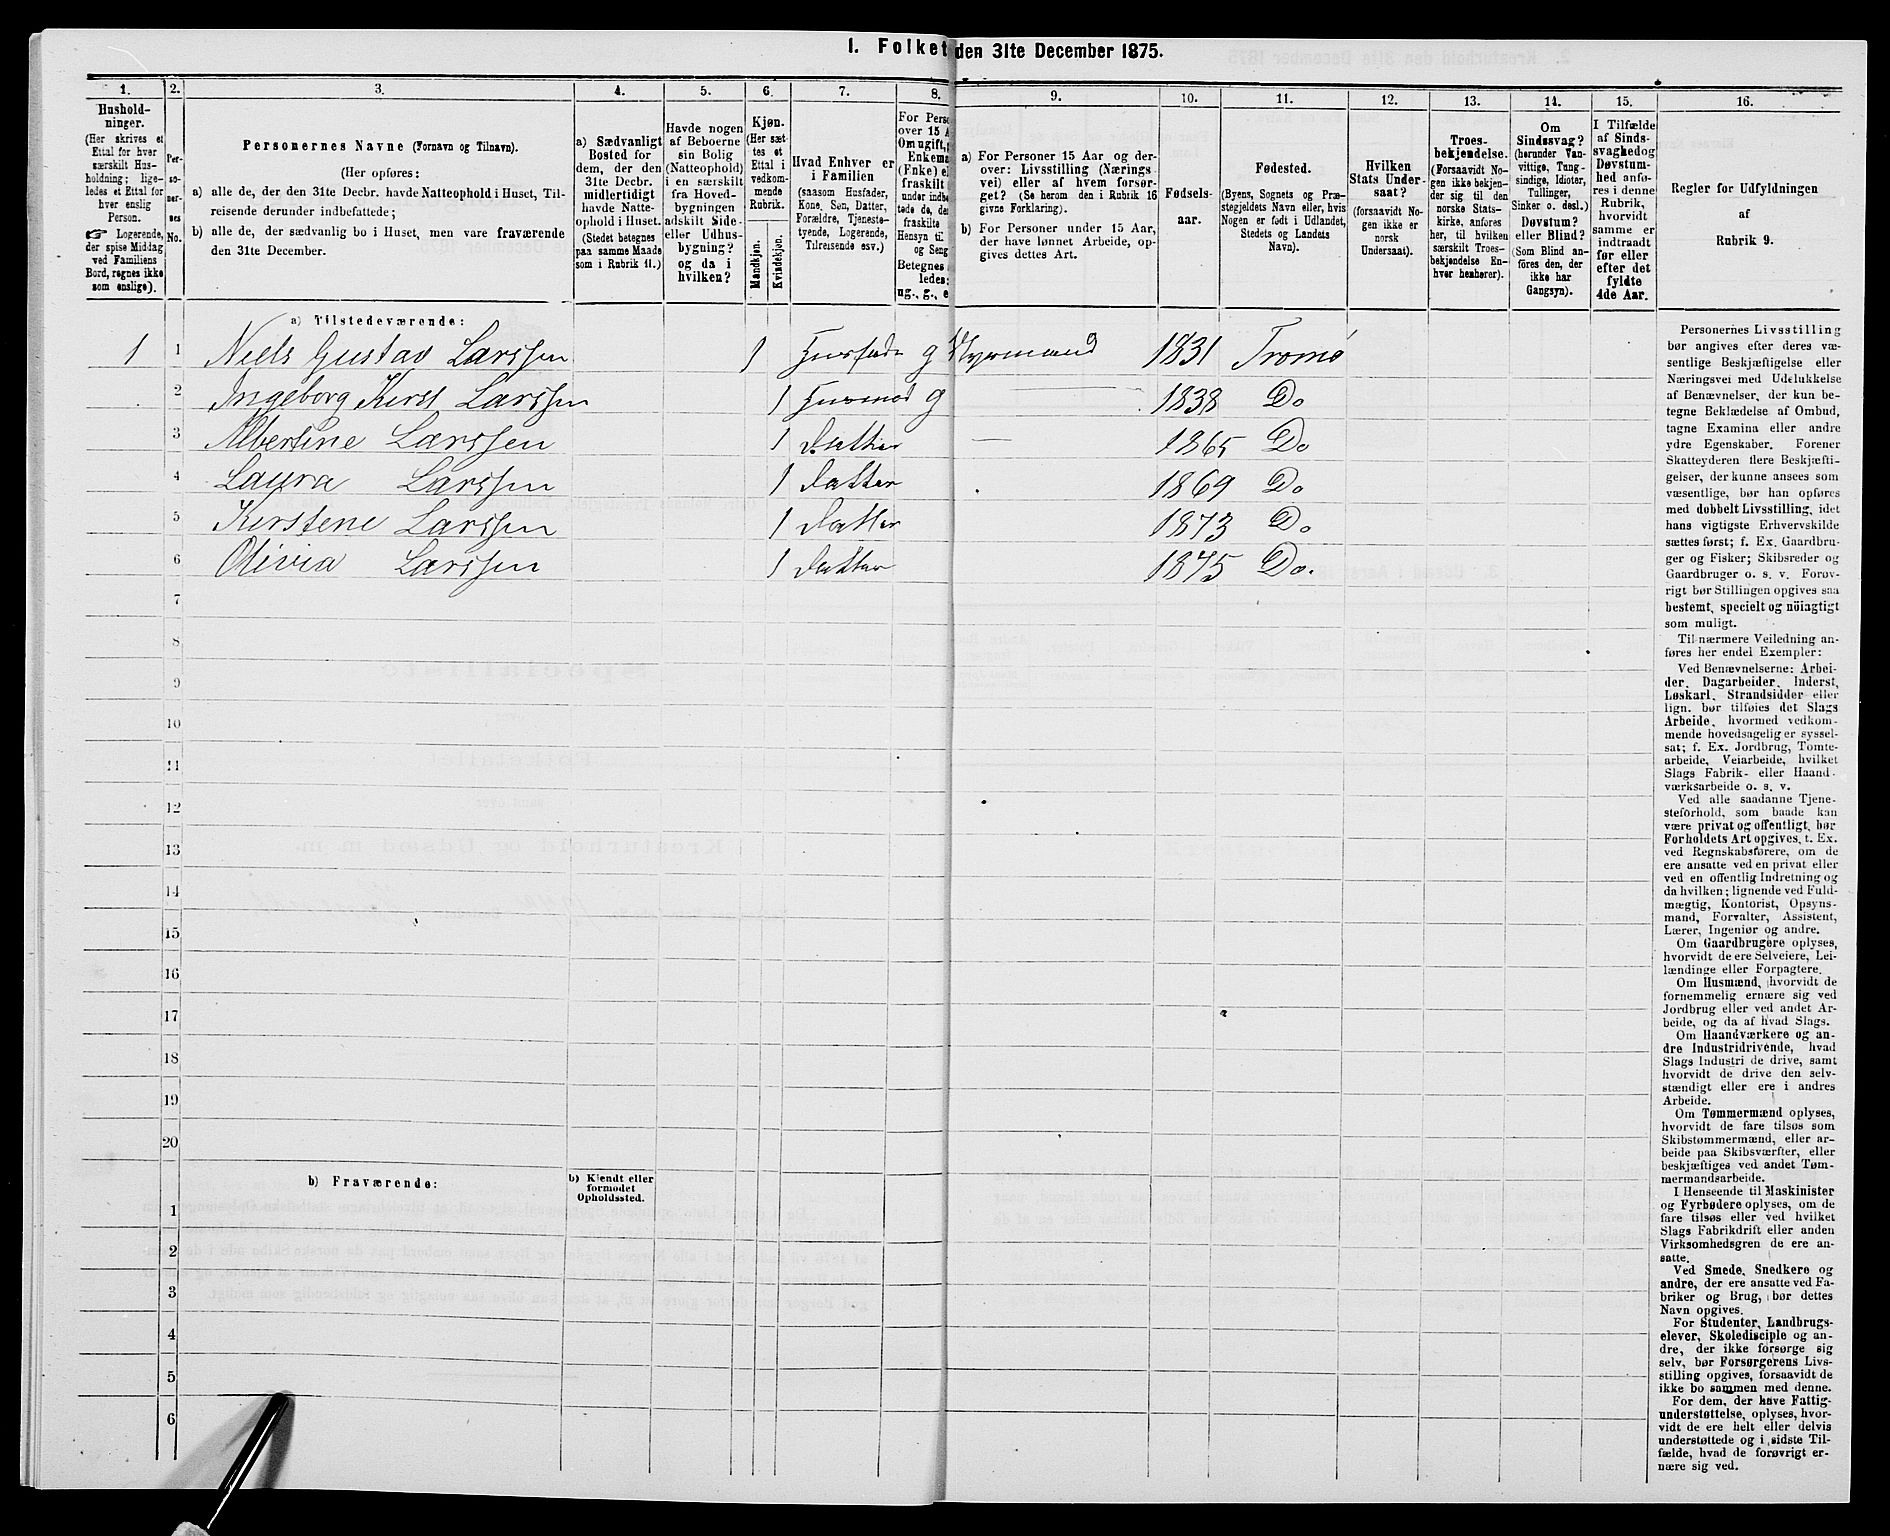 1. Folket den 31te December 1875.
1. 2. 3. 4. 5. 6. 7. 8. 9. 10. 11. 12. 13. 14. 15. 16.
Hushold-
ninger.
(Her skrives et
Ettal for hver
særskilt Hus-
holdning; lige-
ledes et Ettal for
hver enslig
Person.
☞ Logerende,
der spise Middag
ved Familiens
Bord, regnes ikke
som enslige).
Per-
so-
ner-
nes
No.
Personernes Navne (Fornavn og Tilnavn).
(Her opføres:
a) alle de, der den 31te Decbr. havde Natteophold i Huset, Til-
reisende derunder indbefattede;
b) alle de, der sædvanlig bo i Huset, men vare fraværende
den 31te December.
a) Sædvanligt
Bosted for
dem, der den
31te Decbr.
midlertidigt
havde Natte-
ophold i Huset.
(Stedet betegnes
paa samme Maade
som i Rubrik 11.)
Havde nogen
af Beboerne
sin Bolig
(Natteophold)
i en særskilt
fra Hoved-
bygningen
adskilt Side-
eller Udhus-
bygning?
og da i
hvilken?
Kjøn.
(Her sæt-
tes et
Ettal i
vedkom-
mende
Rubrik.)
Mandkjøn.
Kvindekjøn.
Hvad Enhver er
i Familien
(saasom Husfader,
Kone, Søn, Datter,
Forældre, Tjeneste-
tyende, Logerende,
Tilreisende osv.)
For Perso
over 15 A
Om ugift,
Enkema
(Enke) e
fraskilt
under indb
tede de, de
fraskilte
Hensyn til
og Seng
Betegnes
ledes:
ug., g., e
a) For Personer 15 Aar og der-
over: Livsstilling (Nærings-
vei) eller af hvem forsør-
get? (Se herom den i Rubrik 16
givne Forklaring).
b) For Personer under 15 Aar,
der have lønnet Arbeide, op-
gives dettes Art.
Fødsels-
aar.
Fødested.
(Byens, Sognets og Præ-
stegjeldets Navn eller, hvis
Nogen er født i Udlandet,
Stedets og Landets
Navn).
Hvilken
Stats Under-
saat?
(forsaavidt No-
gen ikke er
norsk
Undersaat).
Troes-
bekjendelse.
(Forsaavidt No-
gen ikke bekjen-
der sig til den
norske Stats-
kirke, anføres
her, til hvilken
særskilt Troes-
bekjendelse En-
hver henhører).
Om
Sindssvag?
(herunder Van-
vittige, Tung-
sindige, Idioter,
Tullinger,
Sinker o. desl.)
Døvstum?
eller Blind?
(Som Blind an-
føres den, der
ikke har
Gangsyn).
I Tilfælde
af Sinds-
svaghed og
Døvstum-
hed anfø-
res i denne
Rubrik,
hvorvidt
samme er
indtraadt
før eller
efter det
fyldte
4de Aar.
Regler for Udfyldningen
af
Rubrik 9.
a) Tilstedeværende:
1 1 Niels Gustav Larssen 1 Husfader g Styrmand 1831 Tromø
2 Ingeborg Kirst Larssen 1 Husmod g 1838 Do
3 Albertine Larssen 1 Datter — 1865 Do
4 Laura Larssen 1 Datter 1869 Do
5 Kirstene Larssen 1 Datter 1873 Do
6 Olivia Larssen 1 Datter 1875 Do.
7
8
9
10
11
12
13
14
15
16
17
18
19
20
b) Fraværende:
b) Kjendt eller
formodet
Opholdssted.
1
2
3
4
5
6
Personernes Livsstilling
bør angives efter deres væ-
sentlige Beskjæftigelse eller
Næringsvei med Udelukkelse
af Benævnelser, der kun be-
tegne Beklædelse af Ombud,
tagne Examina eller andre
ydre Egenskaber. Forener
Skatteyderen flere Beskjæfti-
gelser, der kunne ansees som
væsentlige, bør han opføres
med dobbelt Livsstilling, idet
hans vigtigste Erhvervskilde
sættes først; f. Ex. Gaardbru-
ger og Fisker; Skibsreder og
Gaardbruger o. s. v. Forøv-
rigt bør Stillingen opgives saa
bestemt, specielt og nöiagtigt
som muligt.
Til nærmere Veiledning an-
føres her endel Exempler:
Ved Benævnelserne: Arbei-
der, Dagarbeider, Inderst,
Løskarl, Strandsidder eller
lign. bør tilføies det Slags
Arbeide, hvormed vedkom-
mende hovedsagelig er syssel-
sat; f. Ex. Jordbrug, Tomte-
arbeide, Veiarbeide, hvilket
Slags Fabrik- eller Haand-
værksarbeide o. s. v.
Ved alle saadanne Tjene-
steforhold, som baade kan
være privat og offentligt, bør
Forholdets Art opgives, t. Ex.
ved Regnskabsførere, om de
ere ansatte ved en privat eller
ved en offentlig Indretning og
da hvilken; lignende ved Fuld-
mægtig, Kontorist, Opsyns-
mand, Forvalter, Assistent,
Lærer, Ingeniør og andre.
Om Gaardbrugere oplyses,
hvorvidt de ere Selveiere, Lei-
lændinge eller Forpagtere.
Om Husmænd, hvorvidt de
fornemmelig ernære sig ved
Jordbrug eller ved andet Ar-
beide, og da af hvad Slags.
Om Haandværkere og an-
dre Industridrivende, hvad
Slags Industri de drive, samt
hvorvidt de drive den selv-
stændigt eller ere i andres
Arbeide.
Om Tømmermænd oplyses,
hvorvidt de fare tilsøs som
Skibstømmermænd, eller ar-
beide paa Skibsværfter, eller
beskjæftiges ved andet Tøm-
mermandsarbeide.
I Henseende til Maskinister
og Fyrbødere oplyses, om de
fare tilsøs eller ved hvilket
Slags Fabrikdrift eller anden
Virksomhedsgren de ere an-
satte.
Ved Smede, Snedkere og
andre, der ere ansatte ved Fa-
briker og Brug, bør dettes
Navn opgives.
For Studenter, Landbrugs-
elever, Skoledisciple og an-
dre, der ikke forsørge sig
selv, bør Forsørgerens Livs-
stilling opgives, forsaavidt de
ikke bo sammen med denne.
For dem, der have Fattig-
understøttelse, oplyses, hvor-
vidt de ere helt eller delvis
understøttede og i sidste Til-
fælde, hvad de forøvrigt er-
nære sig ved.